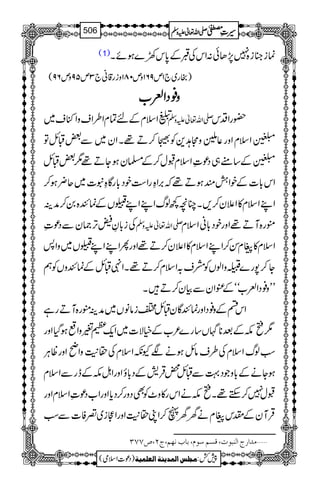 سیرتِ مصطفیٰ صلی اللہ تعالیٰ علیہ وسلم 506
نماز جنازہ نہیں پڑھائی نہ اس کی قبر کے پاس کھڑے ہوئے۔(۱)
(بخاری ج۱ ص۱۶۹ و ص۱۸۰ و زرقانی ج۳ ص۹۵ و ص۹۶)
وفود العرب
حضورِ اقدس صلی اللہ تعالیٰ علیہ وسلم تبلیغ اسلام کے لئے تمام اطراف و اکناف میں
مبلغین اسلام اور عاملین و مجاہدین کو بھیجا کرتے تھے۔ ان میں سے بعض قبائل تو
مبلغین کے سامنے ہی دعوتِ اسلام قبول کر کے مسلمان ہو جاتے تھے مگر بعض قبائل
اس بات کے خواہش مند ہوتے تھے کہ براہِ راست خود بارگاہِ نبوت میں حاضر ہو کر
اپنے اسلام کا اعلان کریں۔ چنانچہ کچھ لوگ اپنے اپنے قبیلوں کے نمائندہ بن کر مدینہ
منورہ آتے تھے اور خود بانی اسلام صلی اللہ تعالیٰ علیہ وسلم کی زبانِ فیض ترجمان سے دعوتِ
اسلام کا پیغام سن کر اپنے اسلام کا اعلان کرتے تھے اور پھر اپنے اپنے قبیلوں میں واپس
جا کر پورے قبیلہ والوں کو مشرف بہ اسلام کرتے تھے۔ انہی قبائل کے نمائندوں کو ہم
’’وفود العرب‘‘ کے عنوان سے بیان کرتے ہیں۔
اس قسم کے وفود اور نمائندگان قبائل مختلف زمانوں میں مدینہ منورہ آتے رہے
مگر فتح مکہ کے بعد ناگہاں سارے عرب کے خیالات میں ایک عظیم تغیر واقع ہو گیا اور
سب لوگ اسلام کی طرف مائل ہونے لگے کیونکہ اسلام کی حقانیت واضح اور ظاہر
ہو جانے کے باوجود بہت سے قبائل محض قریش کے دباؤ اور اہل مکہ کے ڈر سے اسلام
قبول نہیں کر سکتے تھے۔ فتح مکہ نے اس رکاوٹ کو بھی دور کر دیا اور اب دعوتِ اسلام اور
قرآن کے مقدس پیغام نے گھر گھر پہنچ کر اپنی حقانیت اور اعجازی تصرفات سے سب
.....مدارج النبوت، قسم سوم، باب نهم، ج۲، ص۳۷۷
پیش کش: مجلس المدینة العلمیة (دعوتِ اسلامی)